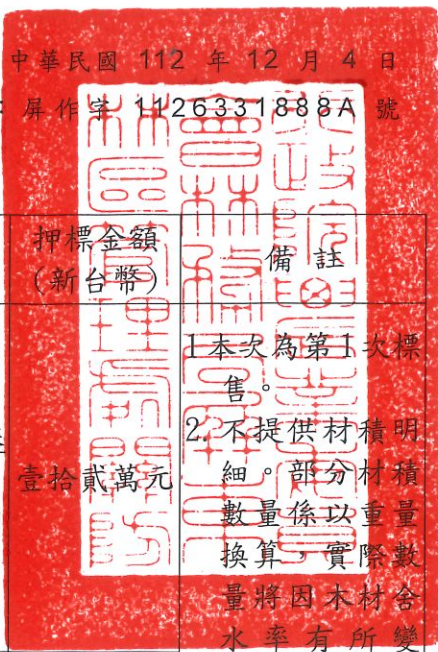 中華民國 112 年 12 月 4 日
屏作字 1126331888A 號
押標金額
(新台幣)
備註
壹拾貳萬元
1 本次為第1次標
售。
2. 不提供材積明
細。部分材積
數量係以重量
換算,實際數
量將因木材含
水率有所變